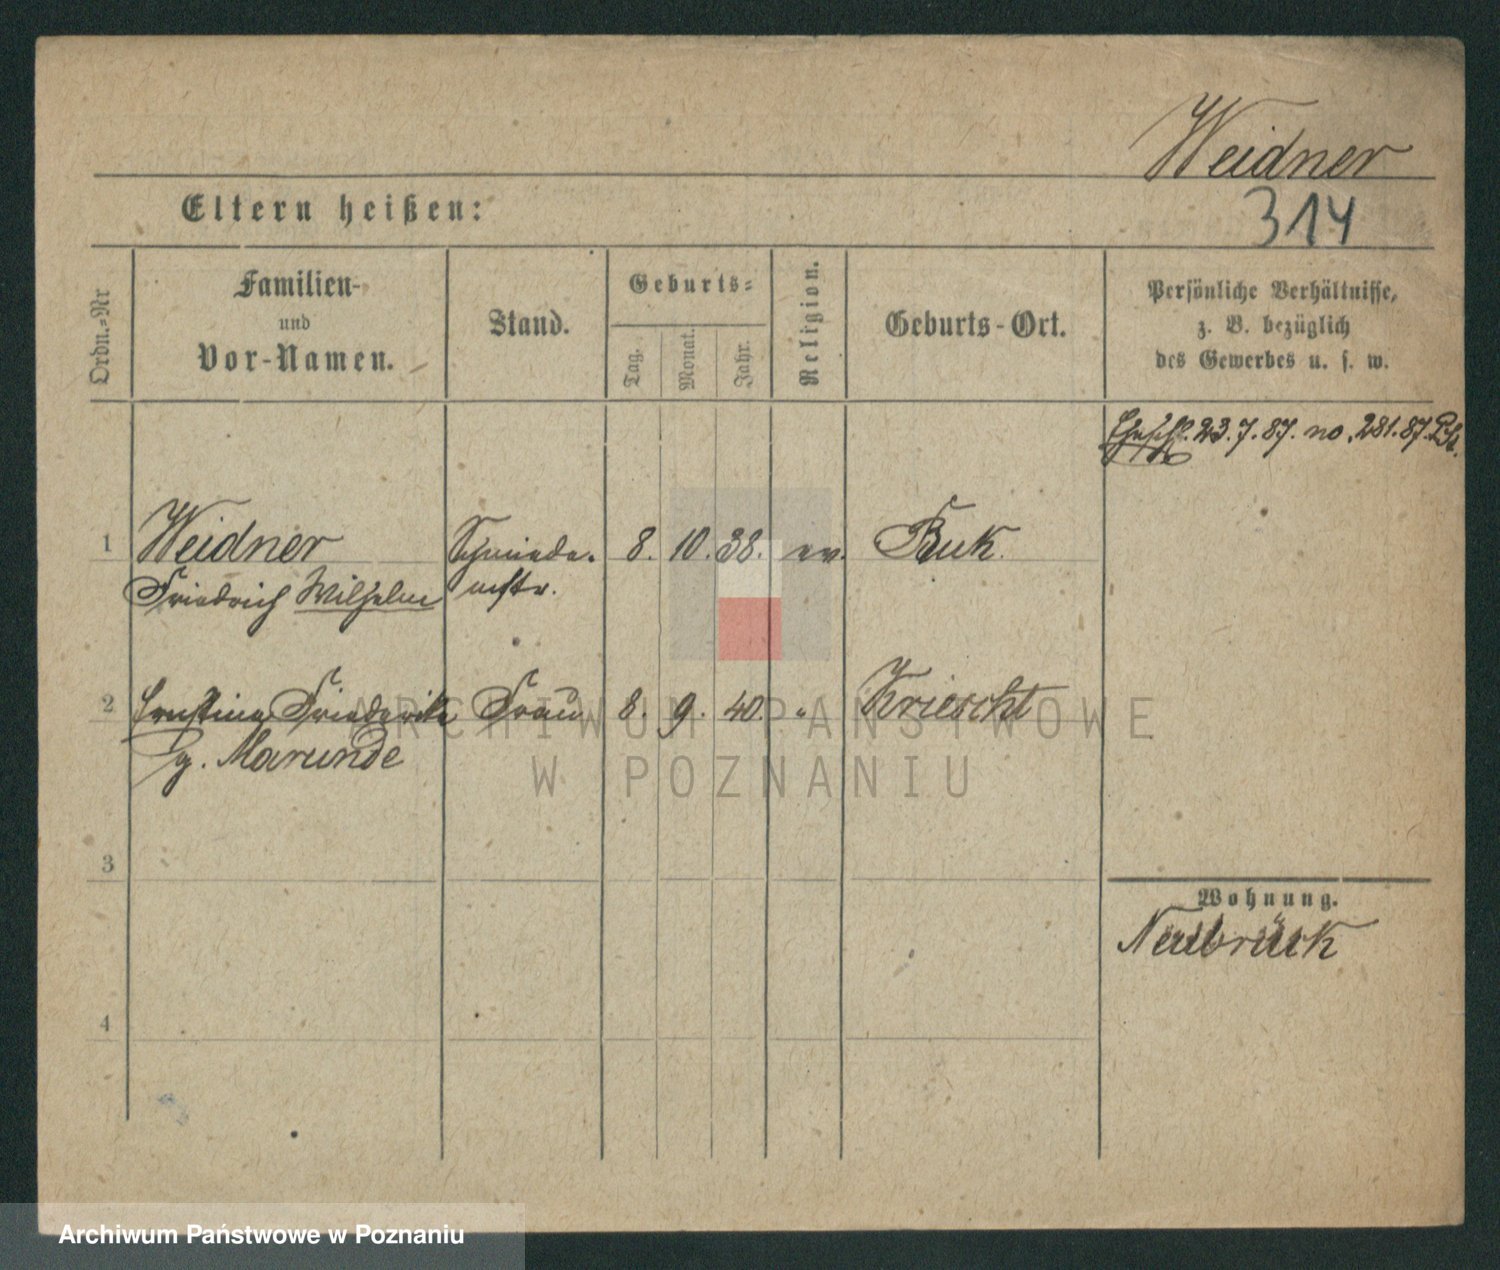 Weidner
314
Eltern heißen:
Ordn.-Nr
Familien-
und
Vor-Namen.
Stand.
Geburts-
Tag.
Monat.
Jahr.
Religion.
Geburts-Ort.
Persönliche Verhältnisse,
z. B. bezüglich
des Gewerbes u. s. w.
23.7.87. no. 281.87.
1 Weidner Schmiede- 8. 10. 38. ev. Buk.
Friedrich Wilhelm mstr.
2 Ernstine Friederike Frau 8. 9. 40. " Kriescht
g. Marunde
ARCHIWUM PAŃSTWOWE
W POZNANIU
3
Wohnung.
Neubrück
4
Archiwum Państwowe w Poznaniu